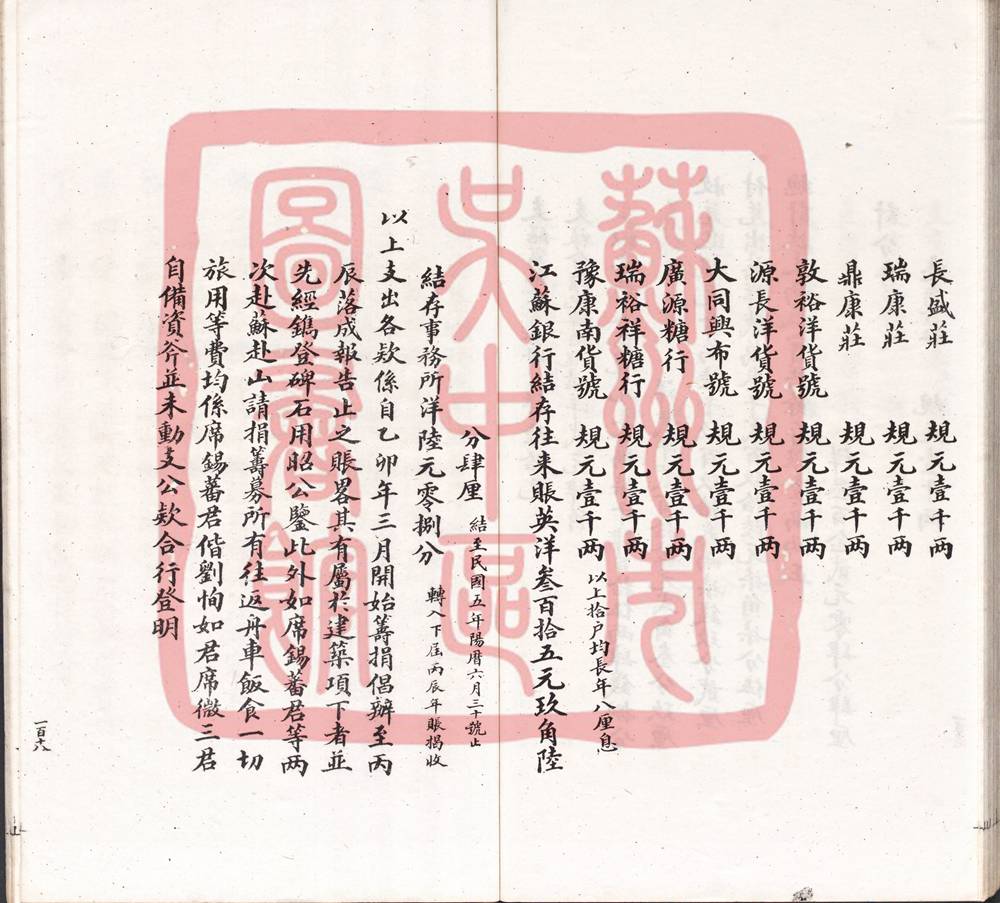 長盛莊 規元壹千两
瑞康莊 規元壹千两
鼎康莊 規元壹千两
敦裕洋貨號 規元壹千两
源長洋貨號 規元壹千两
大同興布號 規元壹千两
廣源糖行 規元壹千两
瑞裕祥糖行 規元壹千两
豫康南貨號 規元壹千两 以上拾户均長年八厘息
江蘇銀行結存往来賬英洋叁百拾五元玖角陸
分肆厘 結至民國五年陽曆六月三十號止
結存事務所洋陸元零捌分 轉入下屆丙辰年賬揭收
以上支出各欵係自乙卯年三月開始籌捐倡辦至丙
辰落成報告止之賬畧其有屬於建築項下者並
先經鐫登碑石用昭公鑒此外如席錫蕃君等两
次赴蘇赴山請捐籌募所有往返舟車飯食一切
旅用等費均係席錫蕃君偕劉恂如君席微三君
自備資斧並未動支公欵合行登明
一百十八
蘇州市
吳中區
圖書館